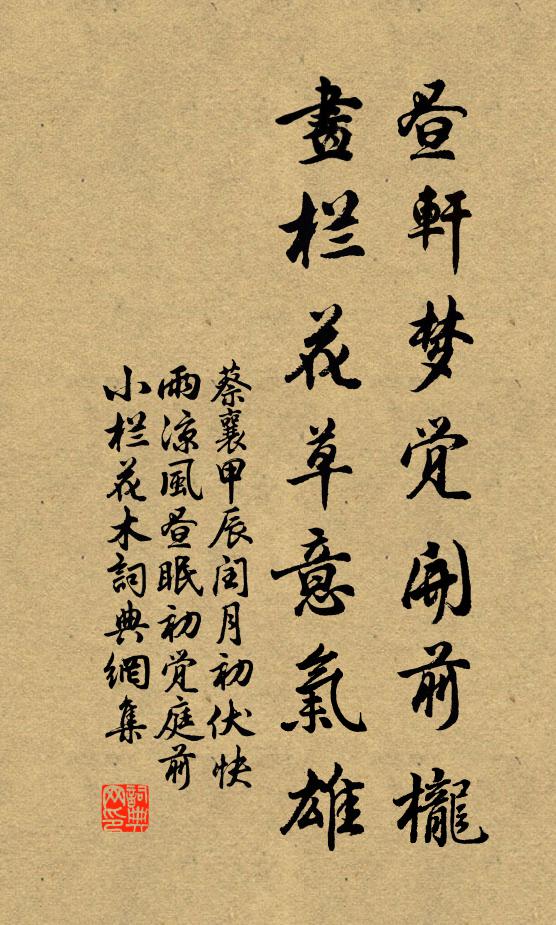 昼軒梦觉開前櫳
畫栏花草意氣雄
蔡襄甲辰闰月初伏快
雨凉風昼眠初觉庭前
小栏花木詞典網集
詞典网印